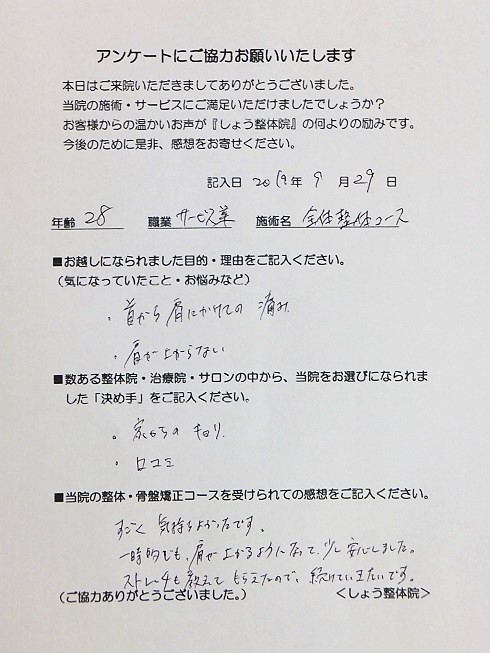 アンケートにご協力お願いいたします
本日はご来院いただきましてありがとうございました。
当院の施術・サービスにご満足いただけましたでしょうか？
お客様からの温かいお声が『しょう整体院』の何よりの励みです。
今後のために是非、感想をお寄せください。
記入日 2019年 9 月 29 日
年齢 28 職業 サービス業 施術名 全体整体コース
■お越しになられました目的・理由をご記入ください。
（気になっていたこと・お悩みなど）
・首から肩にかけての 痛み
・肩が上がらない
■数ある整体院・治療院・サロンの中から、当院をお選びになられま
した「決め手」をご記入ください。
。家からの キョリ
・口コミ
■当院の整体・骨盤矯正コースを受けられての感想をご記入ください。
すごく 気持ちよかったです。
一時的でも、肩が上がるようになって、少し安心しました。
ストレッチも教えて もらえたので、続けていきたいです。
（ご協力ありがとうございました。） ＜しょう整体院＞